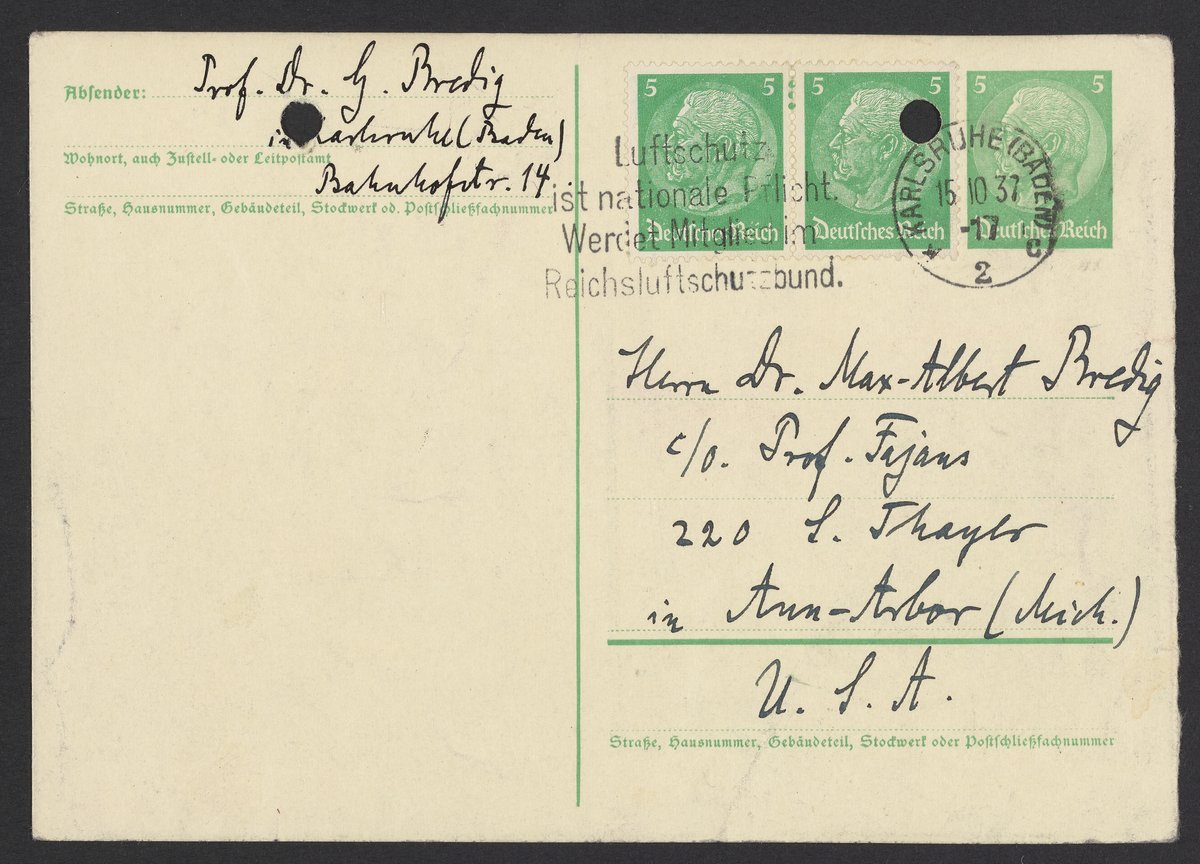 Absender: Prof. Dr. G. Bredig
in Karlsruhe (Baden)
Wohnort, auch Zustell- oder Leitpostamt
Bahnhofstr. 14
Straße, Hausnummer, Gebäudeteil, Stockwerk od. Postschließfachnummer
5 5 5 5 5 5
Deutsches Reich Deutsches Reich Deutsches Reich
Luftschutz
ist nationale Pflicht.
Werdet Mitglied im
Reichsluftschutzbund.
KARLSRUHE (BADEN)
15.10.37
-17
* 2 c
Herrn Dr. Max-Albert Bredig
c/o. Prof. Fajans
220 S. Thayer
in Ann-Arbor (Mich.)
U. S. A.
Straße, Hausnummer, Gebäudeteil, Stockwerk oder Postschließfachnummer